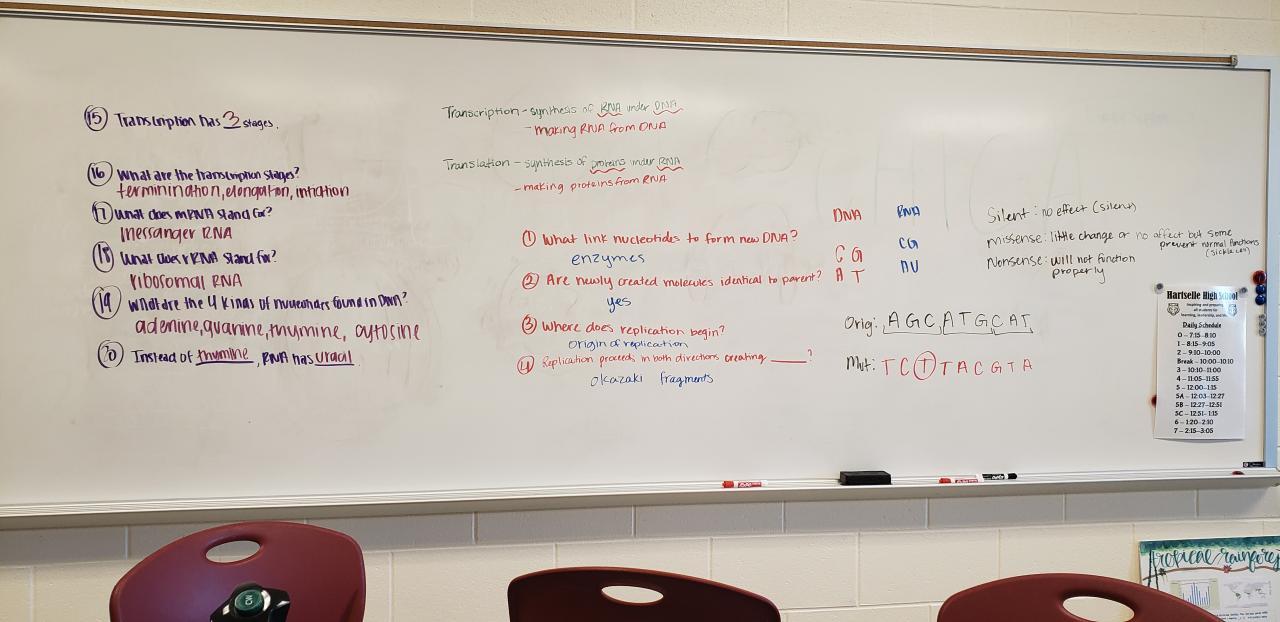 15 Transcription has 3 stages.
16 What are the transcription stages?
terminination, elongation, intiation
17 What does mRNA stand for?
Messanger RNA
18 What does rRNA stand for?
ribosomal RNA
19 What are the 4 kinds of nucleotides found in DNA?
adenine, guanine, thymine, cytosine
Instead of thymine, RNA has uracil.
Transcription - synthesis of RNA under DNA
- making RNA from DNA
Translation - synthesis of proteins under RNA
- making proteins from RNA
1 What link nucleotides to form new DNA?
enzymes
2 Are newly created molecules identical to parent?
yes
3 Where does replication begin?
origin of replication
4 Replication proceeds in both directions creating ____?
okazaki fragments
DNA RNA
C G CG
A T AU
Silent: no effect (silent)
missense: little change or no affect but some
prevent normal functions
(sickle cell)
Nonsense: will not function
properly
Orig: AGC ATG CAT
Mut: T C T T A C G T A
Hartselle High School
Daily Schedule
0 – 7:15-8:10
1 – 8:15-9:05
2 – 9:10-10:00
Break – 10:00-10:10
3 – 10:10-11:00
4 – 11:05-11:55
5 – 12:00-1:15
5A – 12:03-12:27
5B – 12:27-12:51
5C – 12:51-1:15
6 – 1:20-2:10
7 – 2:15-3:05
Tropical rainfores